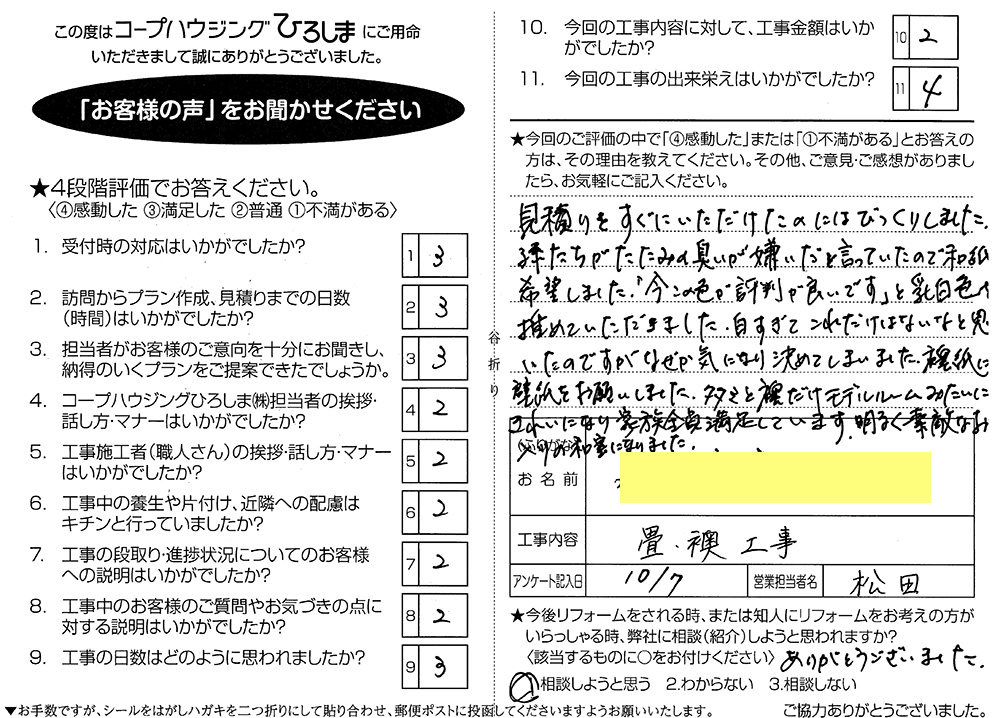 この度はコープハウジングひろしまにご用命
いただきまして誠にありがとうございました。
「お客様の声」をお聞かせください
★4段階評価でお答えください。
〈④感動した ③満足した ②普通 ①不満がある〉
1. 受付時の対応はいかがでしたか?
1 3
2. 訪問からプラン作成、見積りまでの日数
(時間)はいかがでしたか?
2 3
3. 担当者がお客様のご意向を十分にお聞きし、
納得のいくプランをご提案できたでしょうか。
3 3
4. コープハウジングひろしま㈱担当者の挨拶・
話し方・マナーはいかがでしたか?
4 2
5. 工事施工者(職人さん)の挨拶・話し方・マナー
はいかがでしたか?
5 2
6. 工事中の養生や片付け、近隣への配慮は
キチンと行っていましたか?
6 2
7. 工事の段取り・進捗状況についてのお客様
への説明はいかがでしたか?
7 2
8. 工事中のお客様のご質問やお気づきの点に
対する説明はいかがでしたか?
8 2
9. 工事の日数はどのように思われましたか?
9 3
▼お手数ですが、シールをはがしハガキを二つ折りにして貼り合わせ、郵便ポストに投函してくださいますようお願いいたします。
谷折り
10. 今回の工事内容に対して、工事金額はいか
がでしたか?
10 2
11. 今回の工事の出来栄えはいかがでしたか?
11 4
★今回のご評価の中で「④感動した」または「①不満がある」とお答えの
方は、その理由を教えてください。その他、ご意見・ご感想がありまし
たら、お気軽にご記入ください。
見積りをすぐにいただけたのにはびっくりしました。
孫たちがたたみの臭いが嫌いだと言っていたので和紙
希望しました。「今この色が評判が良いです」と乳白色を
推めていただきました。白すぎてこれだけはないなと思
いたのですがなぜか気になり決めてしまいました。襖紙に
壁紙をお願いしました。タタミと襖だけモデルルームみたいに
きれいになり家族全員満足しています。明るく素敵な
お和室になりました。
お名前
工事内容 畳・襖 工事
アンケート記入日 10/7 営業担当者名 松田
★今後リフォームをされる時、または知人にリフォームをお考えの方が
いらっしゃる時、弊社に相談(紹介)しようと思われますか?
〈該当するものに○をお付けください〉 ありがとうございました。
相談しようと思う 2.わからない 3.相談しない
ご協力ありがとうございました。